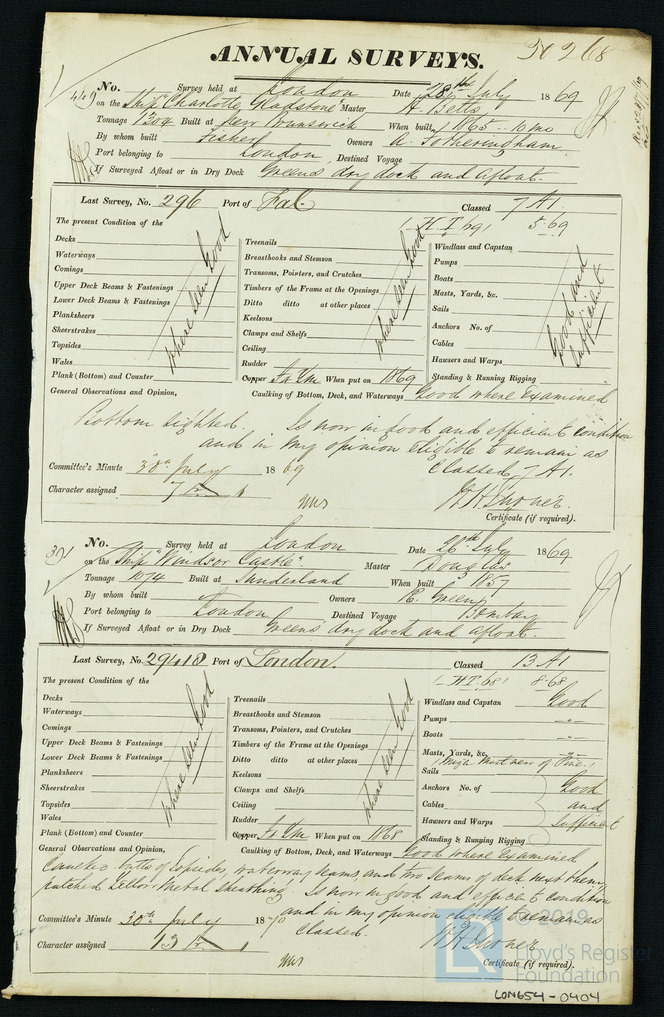 ANNUAL SURVEYS.
449 No. Survey held at London Date 28th July 1869
on the Ship "Charlotte Gladstone" Master A Betts
Tonnage 1304 Built at New Brunswick When built 1865 - 10 mo
By whom built Fisher Owners A. Fotheringham
Port belonging to London Destined Voyage
If Surveyed Afloat or in Dry Dock Greens dry dock and afloat.
Last Survey, No. 296 Port of Fal. Classed 7 A1.
The present Condition of the
Decks
Waterways
Comings
Upper Deck Beams & Fastenings
Lower Deck Beams & Fastenings
Planksheers
Sheerstrakes
Topsides
Wales
Plank (Bottom) and Counter
where seen Good
Treenails
Breasthooks and Stemson
Transons, Pointers, and Crutches
Timbers of the Frame at the Openings
Ditto ditto at other places
Keelsons
Clamps and Shelfs
Ceiling
Rudder
Copper When put on 1869
where seen Good
5-69
Windlass and Capstan
Pumps
Boats
Masts, Yards, &c.
Sails
Anchors No. of
Cables
Hawsers and Warps
Standing & Running Rigging
Good and
Sufficient
General Observations and Opinion,
Caulking of Bottom, Deck, and Waterways Good where Examined
Bottom sighted. Is now in good and efficient condition
and in my opinion eligible to remain as
Classed 7 A1.
Committee's Minute 30th July 1869
Character assigned 7
Certificate (if required).
No. Survey held at London Date 26th July 1869
on the Ship "Windsor Castle" Master Douglas
Tonnage 1074 Built at Sunderland When built 1857
By whom built Owners R. Green
Port belonging to London Destined Voyage Bombay
If Surveyed Afloat or in Dry Dock Greens dry dock and afloat.
Last Survey, No. 29418 Port of London. Classed 13 A1
The present Condition of the
8-68
Decks
Waterways
Comings
Upper Deck Beams & Fastenings
Lower Deck Beams & Fastenings
Planksheers
Sheerstrakes
Topsides
Wales
Plank (Bottom) and Counter
where seen Good
Treenails
Breasthooks and Stemson
Transons, Pointers, and Crutches
Timbers of the Frame at the Openings
Ditto ditto at other places
Keelsons
Clamps and Shelfs
Ceiling
Rudder
Copper When put on 1868
where seen Good
Windlass and Capstan Good
Pumps
Boats
Masts, Yards, &c.
Sails
Anchors No. of Good
Cables and
Hawsers and Warps Sufficient
Standing & Running Rigging
General Observations and Opinion,
Caulking of Bottom, Deck, and Waterways Good where Examined
of topsides, waterway seams, and two seams of deck next them,
Metal Sheathing. Is now in good and efficient condition
and in my opinion eligible to remain as
Classed.
Committee's Minute 30th July 1870
Character assigned 13
Certificate (if required).
© 2019
Lloyd's Register
Foundation
LON654-0404